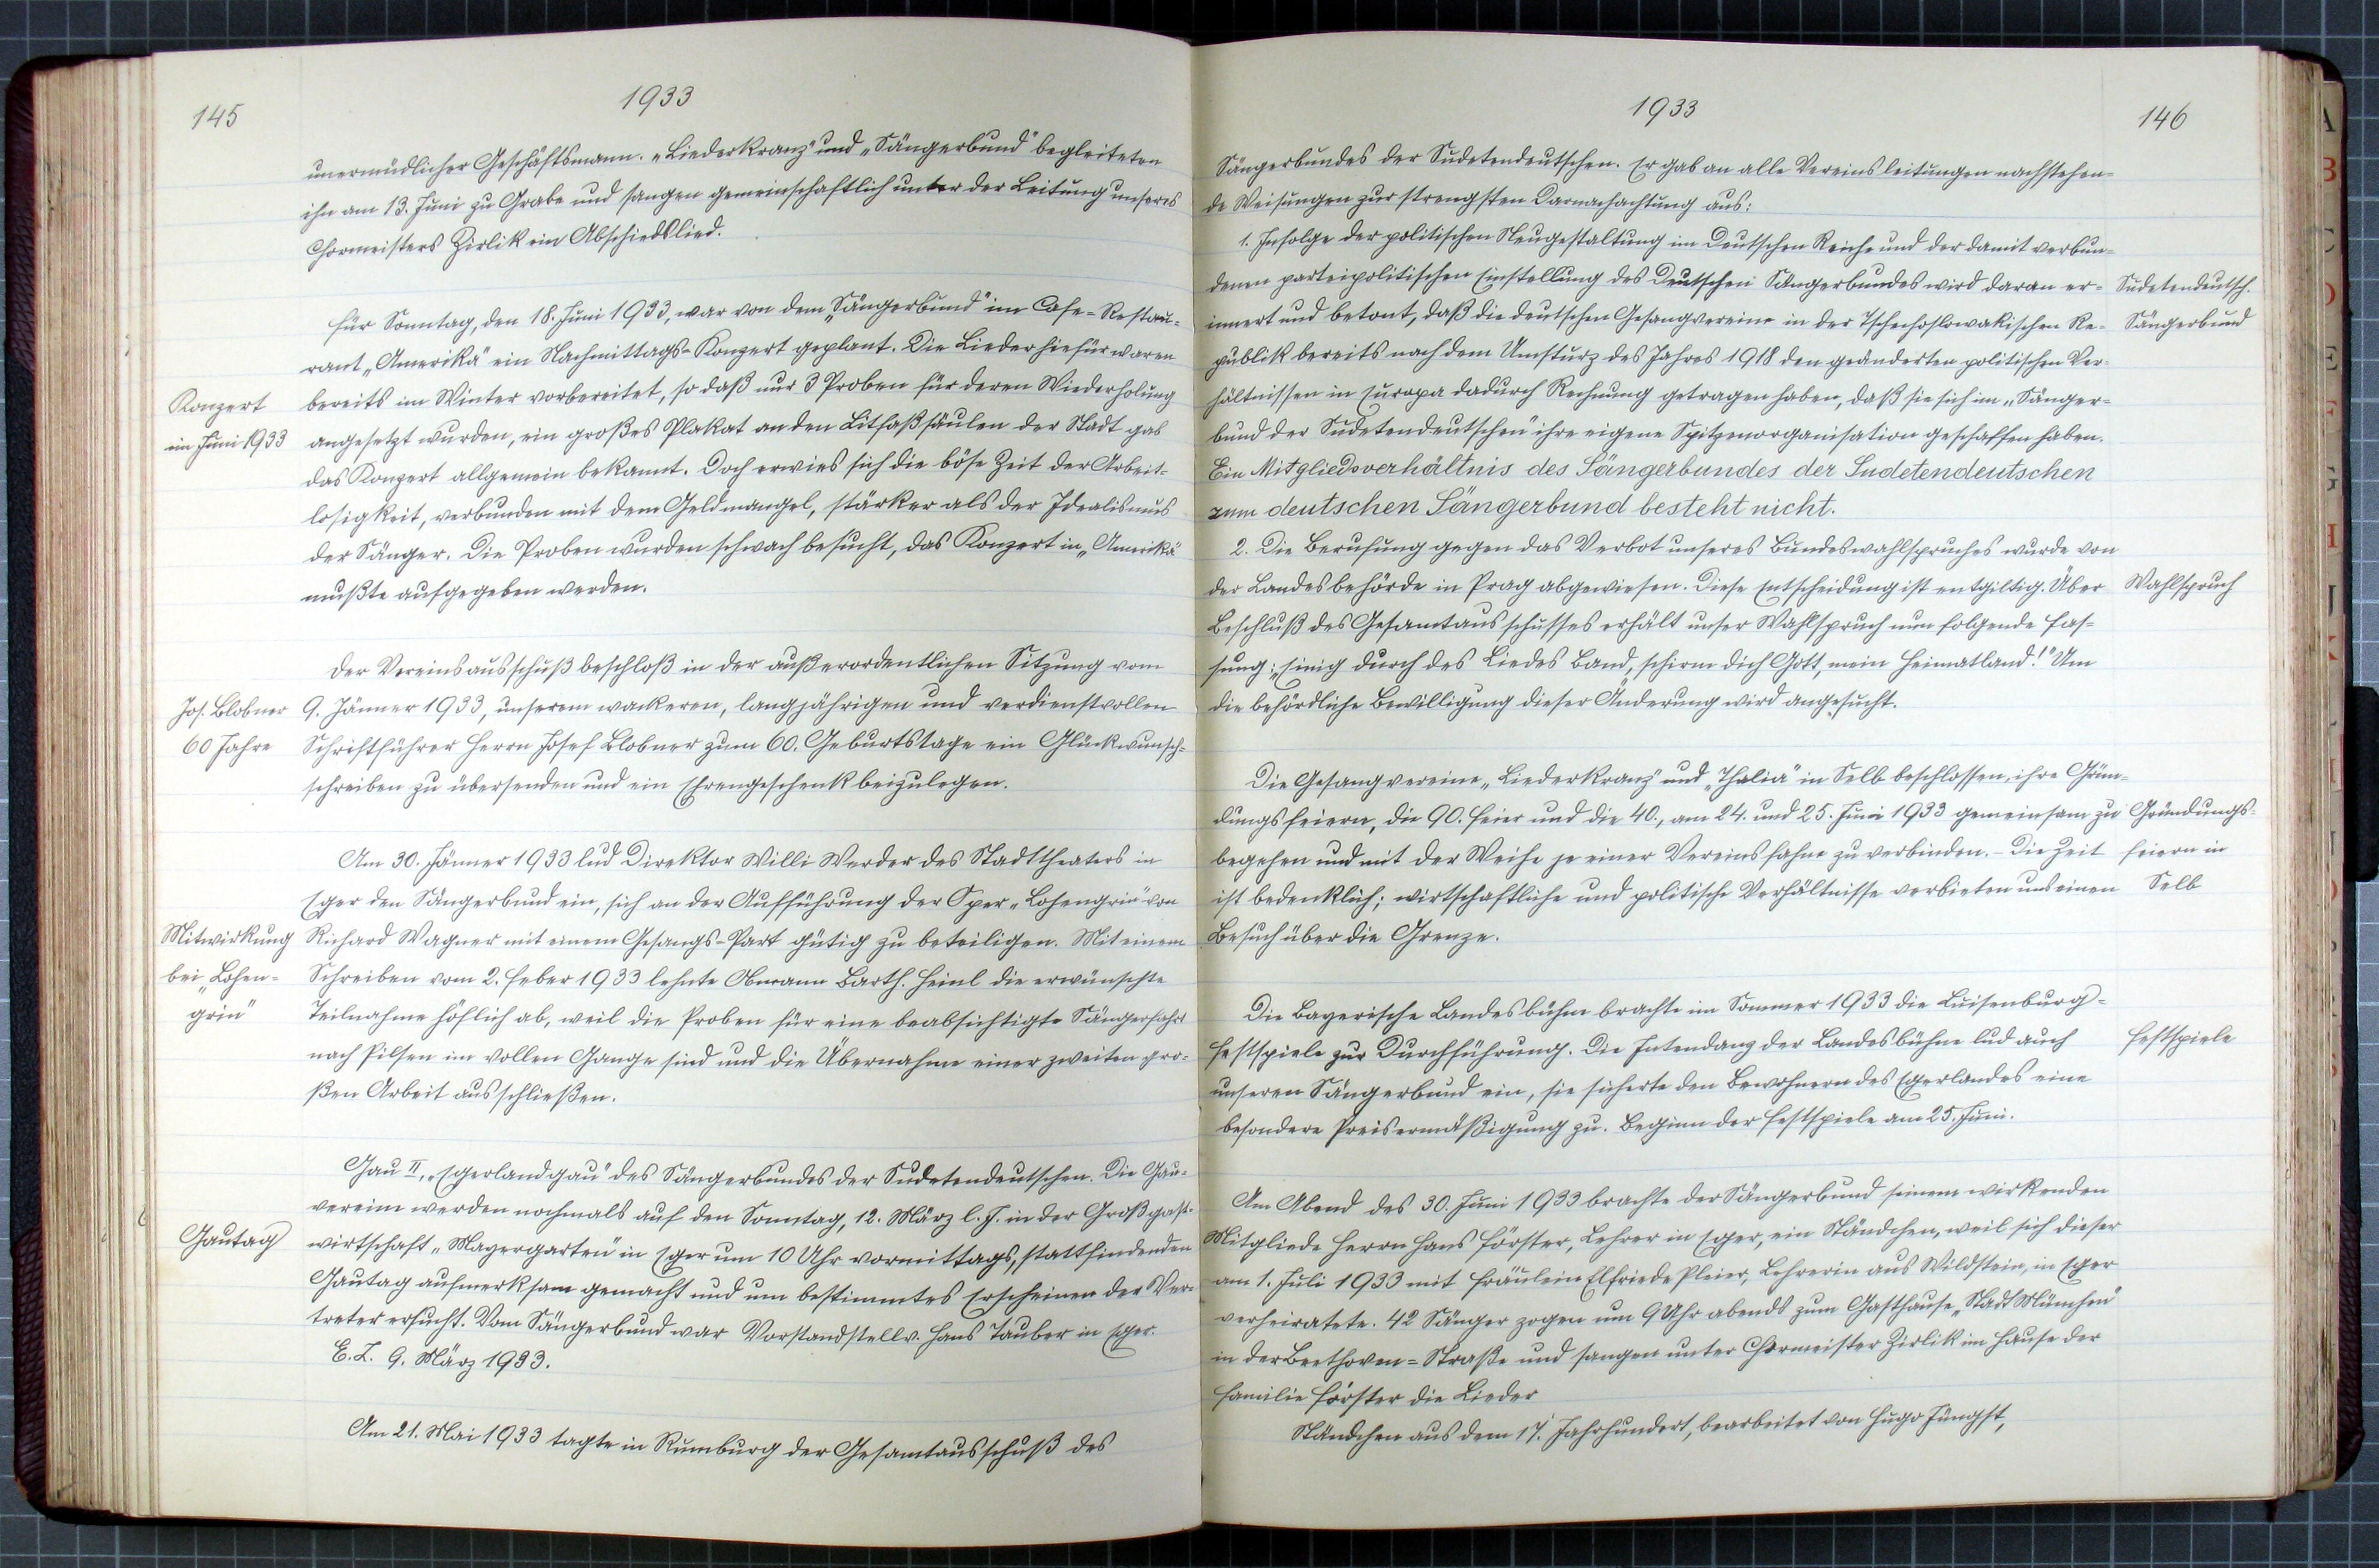 145
1933
unermüdlicher Geschäftsmann. „Liederkranz" und „Sängerbund" begleiteten
ihn am 13. Juni zu Grabe und sangen gemeinschaftlich unter der Leitung unseres
Chormeisters Zirlik ein Abschiedslied.
Für Sonntag, den 18. Juni 1933, war von dem „Sängerbund" im Cafe-Restau-
rant „Amerika" ein Nachmittags-Konzert geplant. Die Lieder hiefür waren
Konzert bereits im Winter vorbereitet, so daß nur 3 Proben für deren Wiederholung
im Juni 1933 angesetzt wurden, ein großes Plakat an den Litfaßsäulen der Stadt gab
das Konzert allgemein bekannt. Doch erwies sich die böse Zeit der Arbeit-
losigkeit, verbunden mit dem Geldmangel, stärker als der Idealismus
der Sänger. Die Proben wurden schwach besucht, das Konzert in „Amerika"
mußte aufgegeben werden.
Der Vereinsausschuß beschloß in der außerordentlichen Sitzung vom
Jos. Blobner 9. Jänner 1933, unserem wackeren, langjährigen und verdienstvollen
60 Jahre Schriftführer Herrn Josef Blobner zum 60. Geburtstage ein Glückwunsch-
schreiben zu übersenden und ein Ehrengeschenk beizulegen.
Am 30. Jänner 1933 lud Direktor Willi Werder des Stadttheaters in
Eger den Sängerbund ein, sich an der Aufführung der Oper „Lohengrin" von
Mitwirkung Richard Wagner mit einem Gesangs-Part gütig zu beteiligen. Mit einem
bei „Lohen- Schreiben vom 2. Feber 1933 lehnte Obmann Barth. Heinl die erwünschte
grin" Teilnahme höflich ab, weil die Proben für eine beabsichtigte Sängerfahrt
nach Pilsen im vollen Gange sind und die Übernahme einer zweiten gro-
ßen Arbeit ausschließen.
Gau II, „Egerlandgau" des Sängerbundes der Sudetendeutschen. Die Gau-
vereine werden nochmals auf den Sonntag, 12. März l. J. in der Großgast-
Gautag wirtschaft „Mayergarten" in Eger um 10 Uhr vormittags, stattfindenden
Gautag aufmerksam gemacht und um bestimmtes Erscheinen der Ver-
treter ersucht. Vom Sängerbund war Vorstandstellv. Hans Tauber in Eger.
E. Z. 9. März 1933.
Am 21. Mai 1933 tagte in Rumburg der Gesamtausschuß des
1933
146
Sängerbundes der Sudetendeutschen. Er gab an alle Vereinsleitungen nachstehen-
de Weisungen zur strengsten Darnachachtung aus:
1. Infolge der politischen Neugestaltung im Deutschen Reiche und der damit verbun-
denen parteipolitischen Einstellung des Deutschen Sängerbundes wird daran er- Sudetendeutsch.
innert und betont, daß die deutschen Gesangvereine in der Tschechoslowakischen Re- Sängerbund
publik bereits nach dem Umsturz des Jahres 1918 den geänderten politischen Ver-
hältnissen in Europa dadurch Rechnung getragen haben, daß sie sich im „Sänger-
bund der Sudetendeutschen" ihre eigene Spitzenorganisation geschaffen haben.
Ein Mitgliedsverhältnis des Sängerbundes der Sudetendeutschen
zum deutschen Sängerbund besteht nicht.
2. Die Berufung gegen das Verbot unseres Bundeswahlspruches wurde von
der Landesbehörde in Prag abgewiesen. Diese Entscheidung ist entgiltig. Über Wahlspruch
Beschluß des Gesamtausschusses erhält unser Wahlspruch nun folgende Fas-
sung: „Einig durch des Liedes Band, schirm dich Gott, mein Heimatland!" Um
die behördliche Bewilligung dieser Änderung wird angesucht.
Die Gesangvereine „Liederkranz" und „Thalia" in Selb beschlossen, ihre Grün-
dungsfeiern, die 90. Feier und die 40., am 24. und 25. Juni 1933 gemeinsam zu Gründungs-
begehen und mit der Weihe je einer Vereinsfahne zu verbinden. – Die Zeit feiern in
ist bedenklich; wirtschaftliche und politische Verhältnisse verbieten uns einen Selb
Besuch über die Grenze.
Die Bayerische Landesbühne brachte im Sommer 1933 die Luisenburg-
Festspiele zur Durchführung. Die Intendanz der Landesbühne lud auch Festspiele
unseren Sängerbund ein, sie sicherte den Bewohnern des Egerlandes eine
besondere Preisermäßigung zu. Beginn der Festspiele am 25. Juni.
Am Abend des 30. Juni 1933 brachte der Sängerbund seinem wirkenden
Mitgliede Herrn Hans Förster, Lehrer in Eger, ein Ständchen, weil sich dieser
am 1. Juli 1933 mit Fräulein Elfriede Pleier, Lehrerin aus Wildstein, in Eger
verheiratete. 42 Sänger zogen um 9 Uhr abends zum Gasthause „Stadt München"
in der Beethoven-Straße und sangen unter Chormeister Zirlik im Hause der
Familie Förster die Lieder
Ständchen aus dem 17. Jahrhundert, bearbeitet von Hugo Jüngst,